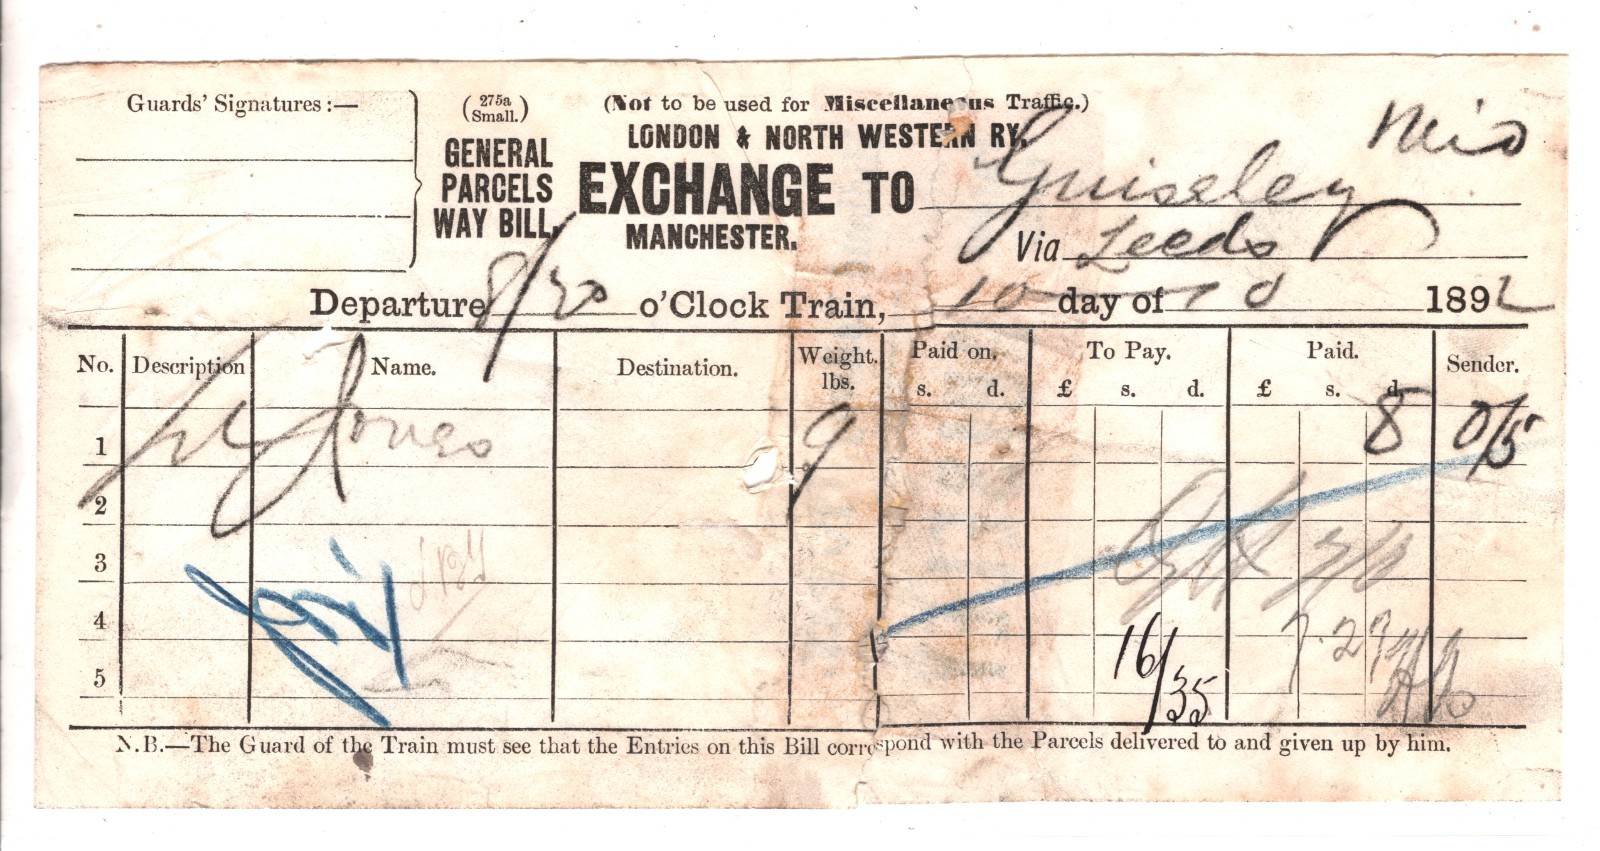 Guards' Signatures:—
(275a Small.)
GENERAL
PARCELS
WAY BILL.
(Not to be used for Miscellaneous Traffic.)
LONDON & NORTH WESTERN RY.
EXCHANGE TO Guiseley Mid
MANCHESTER.
Via Leeds
Departure 8/20 o'Clock Train, 10 day of 10 1892
No. Description Name. Destination. Weight. lbs. Paid on. s. d. To Pay. £ s. d. Paid. £ s. d. Sender.
1 Jones 9 8 0/5
2
3
4
16/35
5
N.B.—The Guard of the Train must see that the Entries on this Bill correspond with the Parcels delivered to and given up by him.